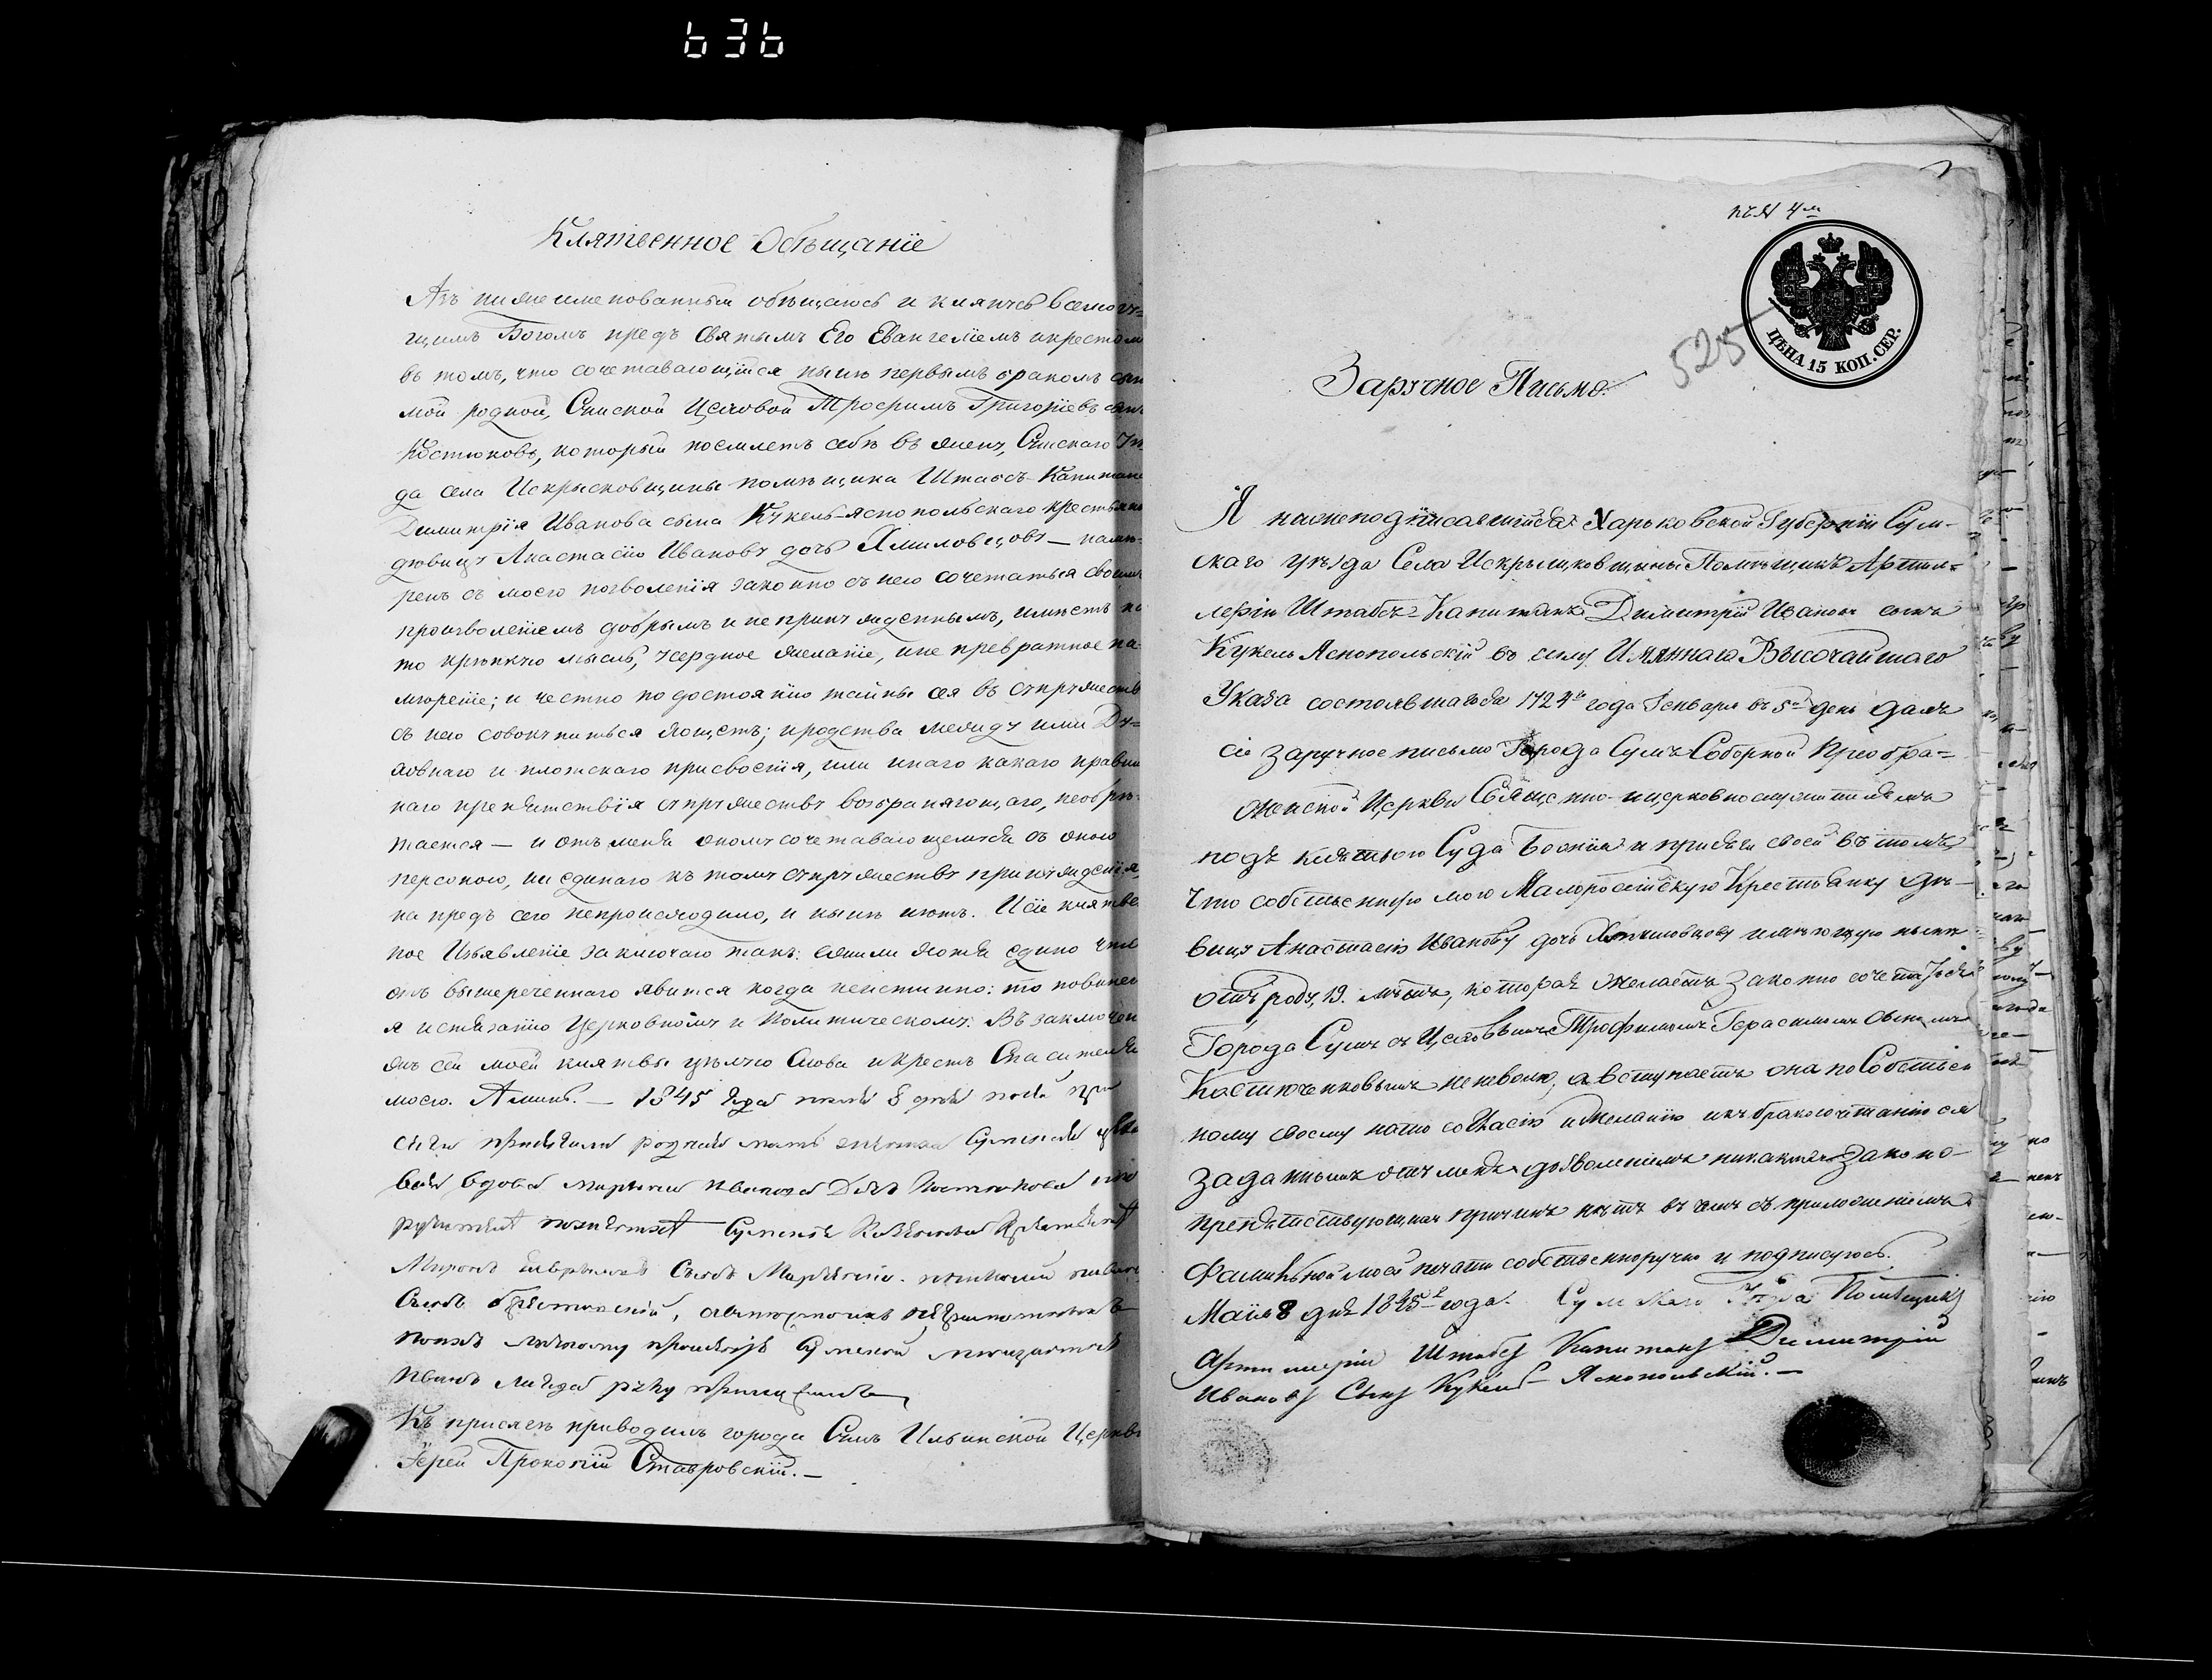 636
Клятвенное Обѣщанїе
Азъ нижеименованный обѣщаюсь и клянусь всемогу=
щимъ Богомъ предъ Святымъ Его Евангелїемъ и крестом
въ томъ, что сочетавающїйся нынѣ первымъ бракомъ сын
мой родной, Сумской Цеховой Трофимъ Григорїевъ сын
Костюковъ, который поемлетъ себѣ въ жену, Сумскаго Уѣ
да села Искрысковщины помѣщика Штабсъ-Капитана
Димитрїя Иванова сына Кукель-Яснопольскаго крестьянк
дѣвицу Анастасїю Иванову дочь Хмиловцову — намѣ-
ренъ съ моего позволенїя законно съ нею сочетаться своимъ
произволенїемъ добрымъ и не принужденнымъ, имѣетъ на
то крѣпкую мысль, усердное желанїе, и не превратное на-
мѣренїе; и честно по достоянїю тайны сея въ супружеств
съ нею совокупиться хощетъ; и родства между ими Ду=
ховнаго и плотскаго присвоенїя, или инаго какаго правил
наго препятствїя супружеству возбраняющаго, необрѣ-
тается — и отъ меня оному сочетавающемуся съ оною
персоною, ни единаго къ тому супружеству принужденїя,
на предъ сего непроисходило, и нынѣ нѣтъ. И сїе клятве
ное Изъявленїе заключаю такъ: ежели хотя едино что
отъ вышереченнаго явится когда неистинно: то повинен
я истязанїю Церковному и Политическому. Въ заключен
же сей моей клятвы цѣлую Слова и крестъ Спасителя
моего. Аминь. — 1845 года мая 8 дня по сей при
сяги присягали родная мать жениха Сумская цѣхо
вая вдова Марѣя Иванова Дочь Костюкова
Иванъ руку приложилъ
Къ присягѣ приводилъ города Сумъ Ильинской Церкви
Їерей Прокопїй Ставровскїй. —
525
ЦѢНА 15 КОП. СЕР.
Заручное Письмо.
Я нижеподписавшїйся Харьковской Губернїи Сум-
скаго уѣзда Села Искрысковщины Помѣщикъ Артил=
лерїи Штабсъ-Капитанъ Димитрїй Ивановъ сынъ
Кукель Яснопольскїй въ силу Имяннаго Высочайшаго
Указа состоявшагося 1724го года Генваря въ 5й день далъ
сїе заручное письмо Города Сумъ Соборной Преобра=
женской Церкви Священно-церковнослужителямъ
подъ клятвою Суда Божїя и присяги своей въ томъ
что собственную мою Малоросїйскую Крестьянку дѣ-
вицу Анастасїю Иванову дочь Хмиловцову имѣющую нынѣ
отъ роду, 19. лѣтъ, которая желаетъ законно сочетаться
Города Сумъ съ Цеховымъ Трофимомъ Герасимомъ сыномъ
Костюченковымъ неневолю, а вступаетъ она по Собствен
ному своему на то согласїю и желанїю и къ бракосочитанїю ея
за даннымъ отъ меня дозволенїемъ никакихъ законо-
препятствующихъ причинъ нѣтъ въ чемъ съ приложенїемъ
Фамильной моей печати собственноручно и подписуюсь.
Маїя 8 дня 1845го года. Сумскаго Уѣзда Помѣщикъ
Артиллерїи Штабсъ Капитанъ Димитрїй
Ивановъ Сынъ Кукель-Яснопольскїй. —